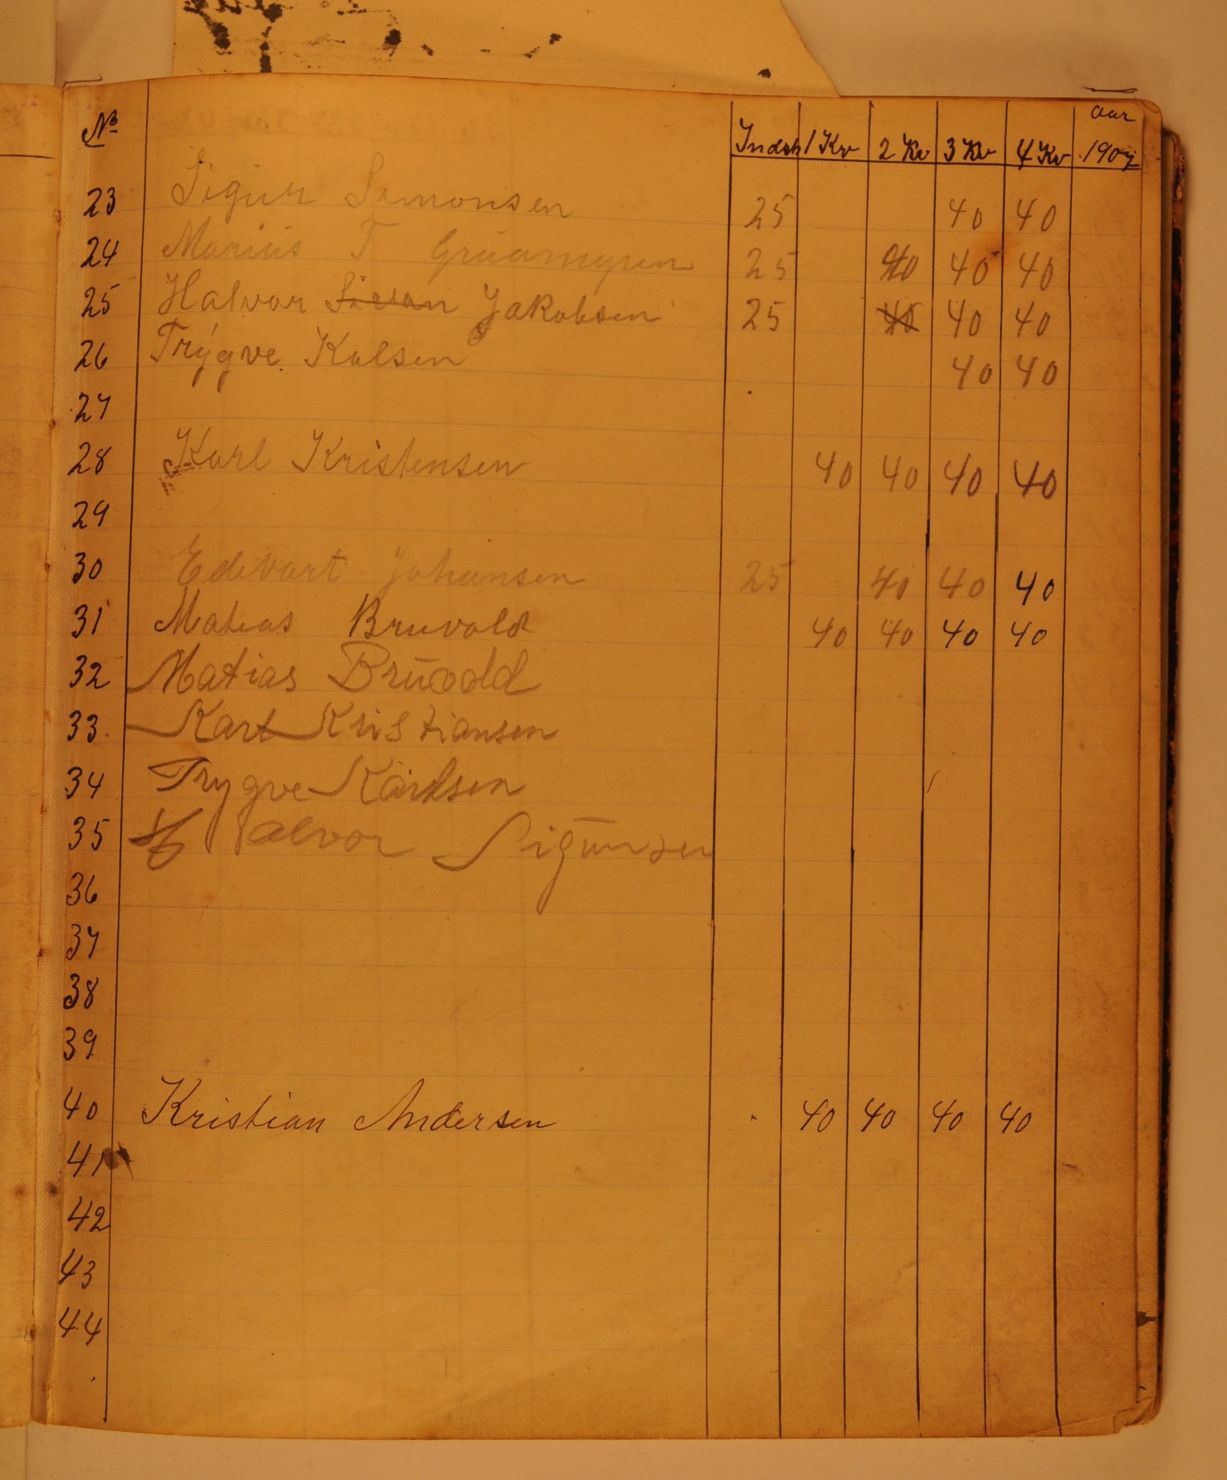 No Indsk 1 Kv 2 Kv 3 Kv 4 Kv aar 1907
23 Sigur Simonsen 25 40 40
24 Marius T Gruamyren 25 40 40 40
25 Halvor Jakobsen 25 40 40 40
26 Trygve Kalsen 40 40
27
28 Karl Kristensen 40 40 40 40
29
30 Edevart Johansen 25 40 40 40
31 Matias Bruvold 40 40 40 40
32 Matias Bruvold
33 Karl Kristiansen
34 Trygve Karlsen
35 Halvor Sigursen
36
37
38
39
40 Kristian Andersen 40 40 40 40
41
42
43
44